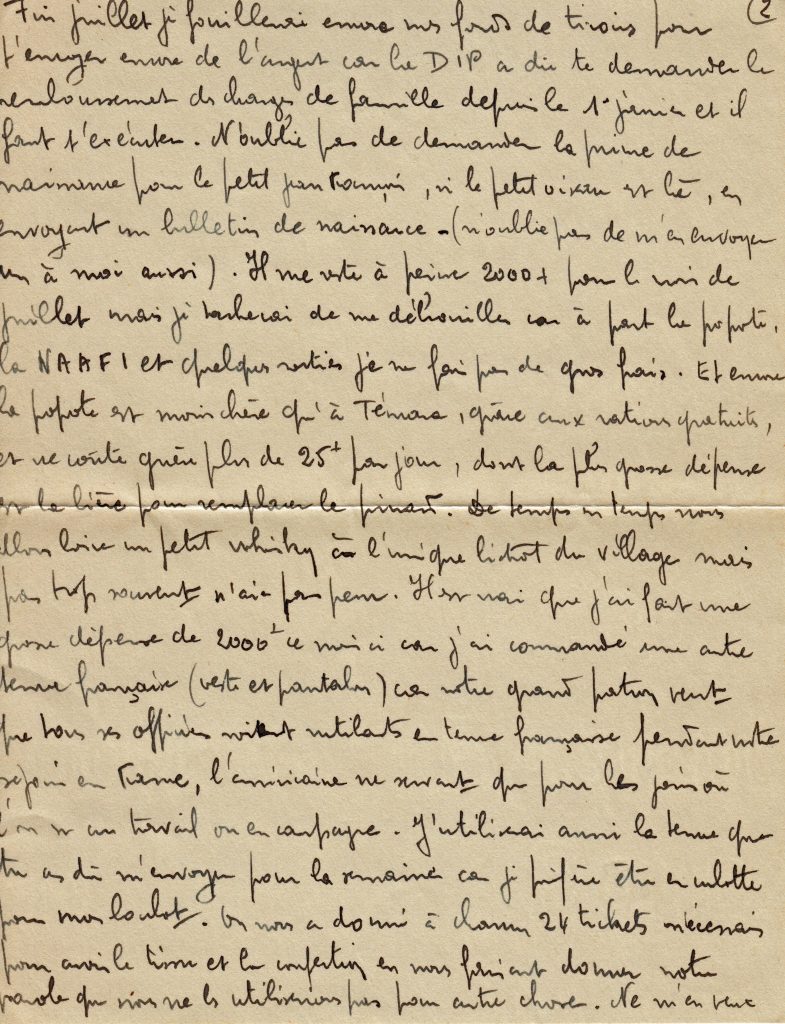 (2
Fin juillet je fouillerai encore mes fonds de tiroirs pour
t'envoyer encore de l'argent car la DIP a dû te demander le
remboursement des charges de famille depuis le 1er janvier et il
faut t'exécuter. N'oublie pas de demander la prime de
naissance pour le petit Jean François, si le petit oiseau est là, en
envoyant un bulletin de naissance - (n'oublie pas de m'en envoyer
un à moi aussi). Il me reste à peine 2000+ pour le mois de
juillet mais je tacherai de me débrouiller car à part la popote,
la NAAFI et quelques sorties je ne fais pas de gros frais. Et encore
la popote est moins chère qu'à Témara, grâce aux rations gratuites,
et ne coûte guère plus de 25+ par jour, dont la plus grosse dépense
est la bière pour remplacer le pinard. De temps en temps nous
allons boire un petit whisky à l'unique bistrot du village mais
pas trop souvent n'aie pas peur. Il est vrai que j'ai fait une
grosse dépense de 2000+ ce mois ci car j'ai commandé une autre
tenue française (veste et pantalon) car notre grand patron veut
que tous ses officiers soient rutilants en tenue française pendant notre
séjour en France, l'américaine ne servant que pour les jours où
l'on est au travail ou en campagne. J'utiliserai aussi la tenue que
tu as dû m'envoyer pour la semaine car je préfère être en culotte
pour mon boulot. On nous a donné à chacun 24 tickets nécessaires
pour avoir le tissu et la confection en nous faisant donner notre
parole que nous ne les utiliserions pas pour autre chose. Ne m'en veux